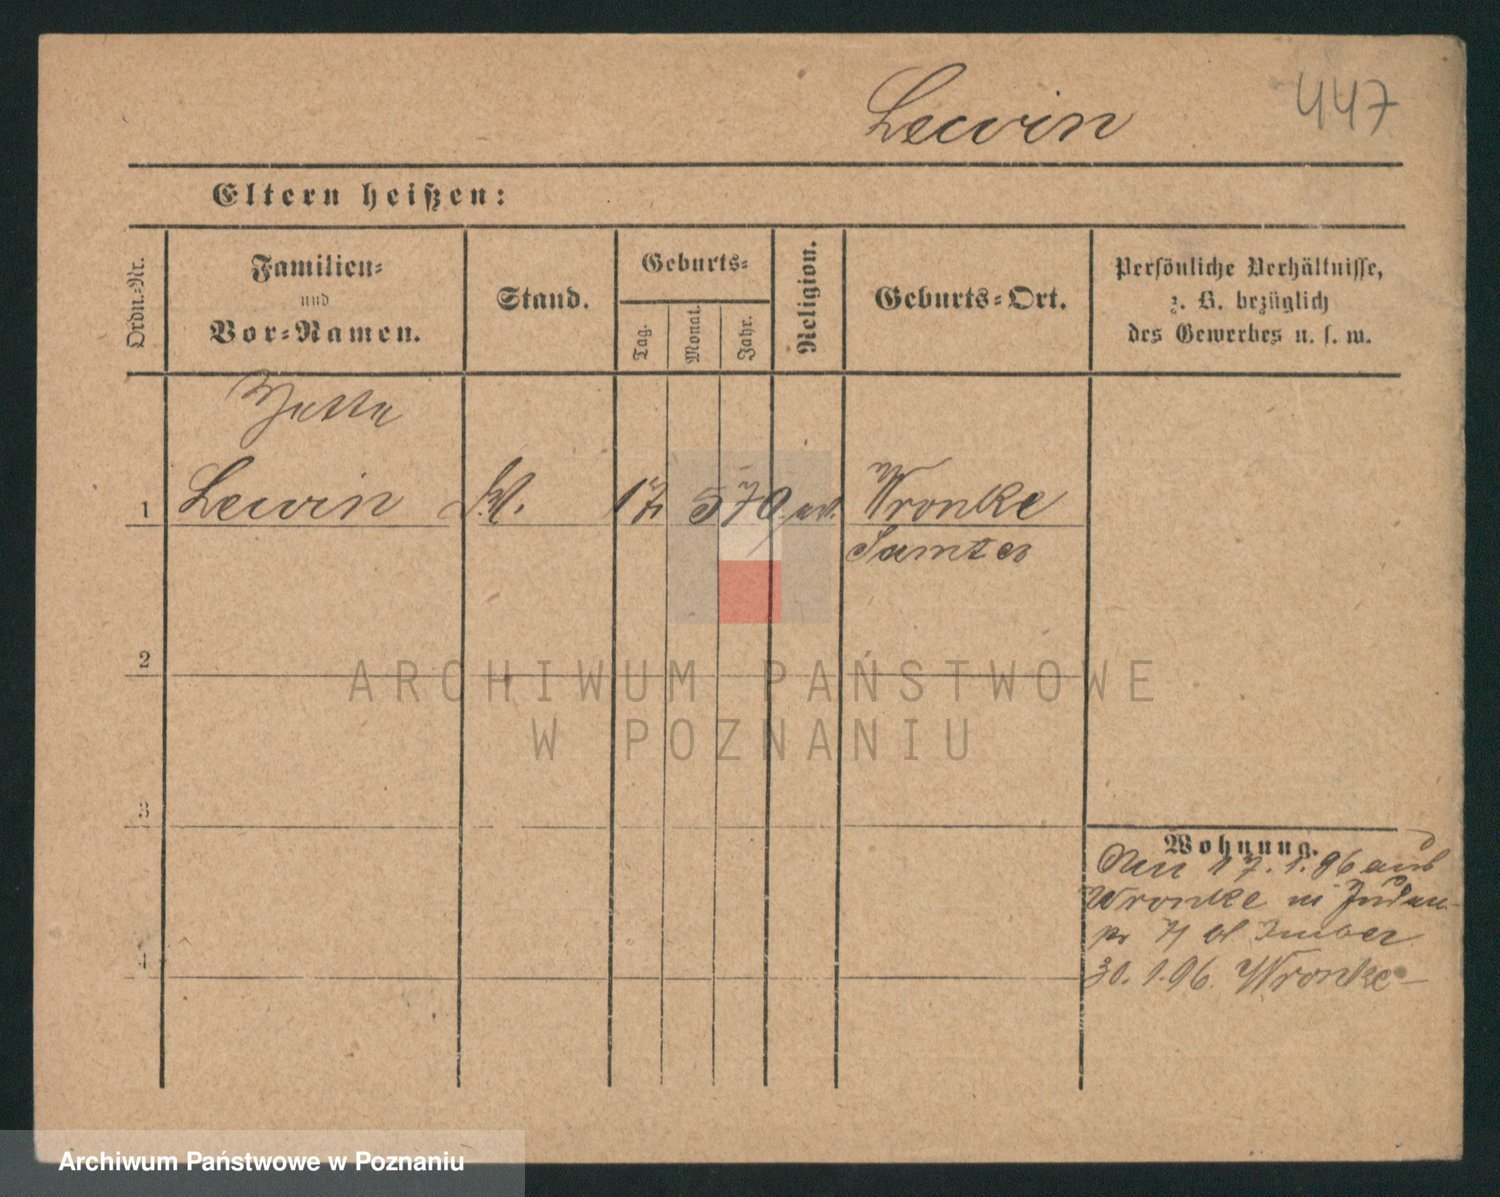 Lewin 447
Eltern heißen:
Ordn.-Nr. Familien- und Vor-Namen. Stand. Geburts- Tag. Monat. Jahr. Religion. Geburts-Ort. Persönliche Verhältnisse, z. B. bezüglich des Gewerbes u. s. w.
Jette
1 Lewin 17 5 70 Wronke
Samter
2
3
4
Wohnung.
17. 1. 96 aus
Wronke
30. 1. 96. Wronke
ARCHIWUM PAŃSTWOWE
W POZNANIU
Archiwum Państwowe w Poznaniu